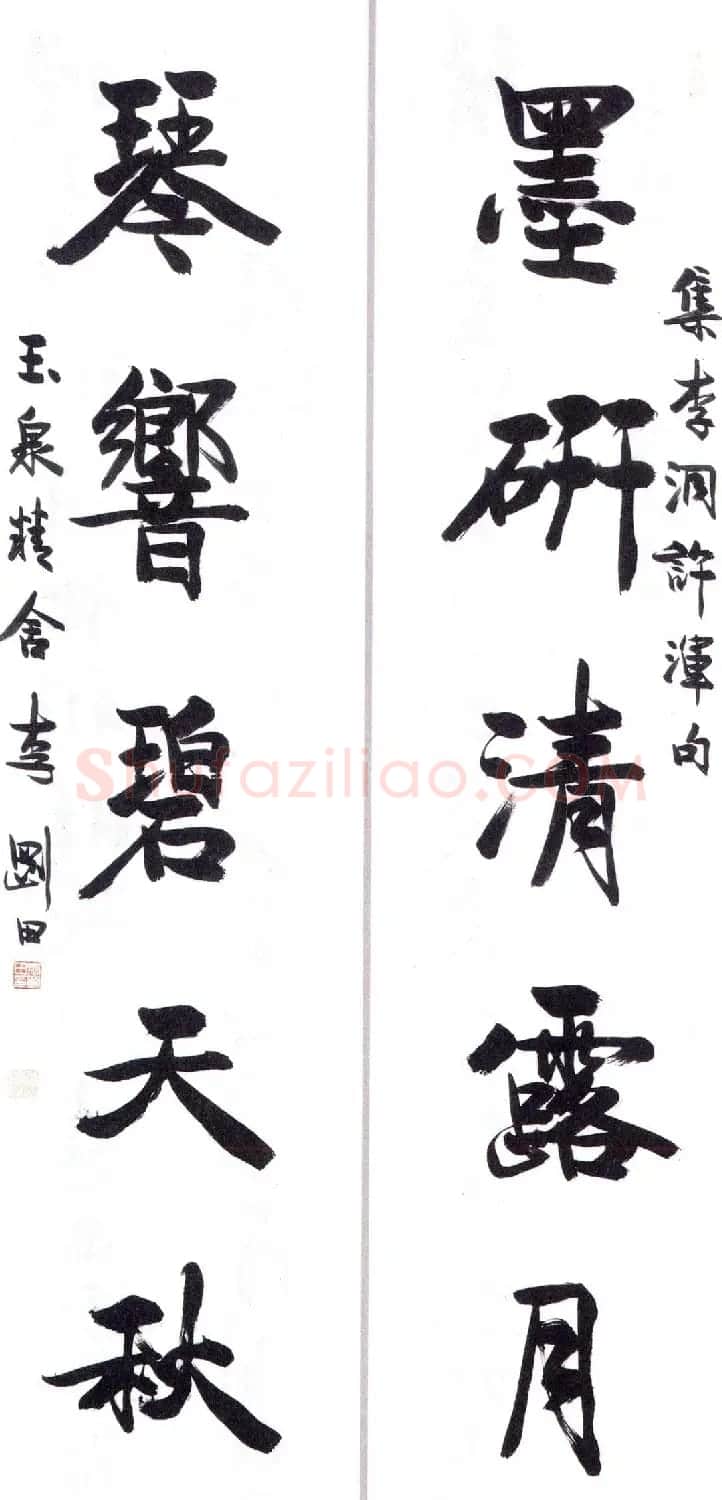 集李洞許渾句
墨研清露月
琴響碧天秋
玉泉精舍李剛田
Shufaziliao.COM